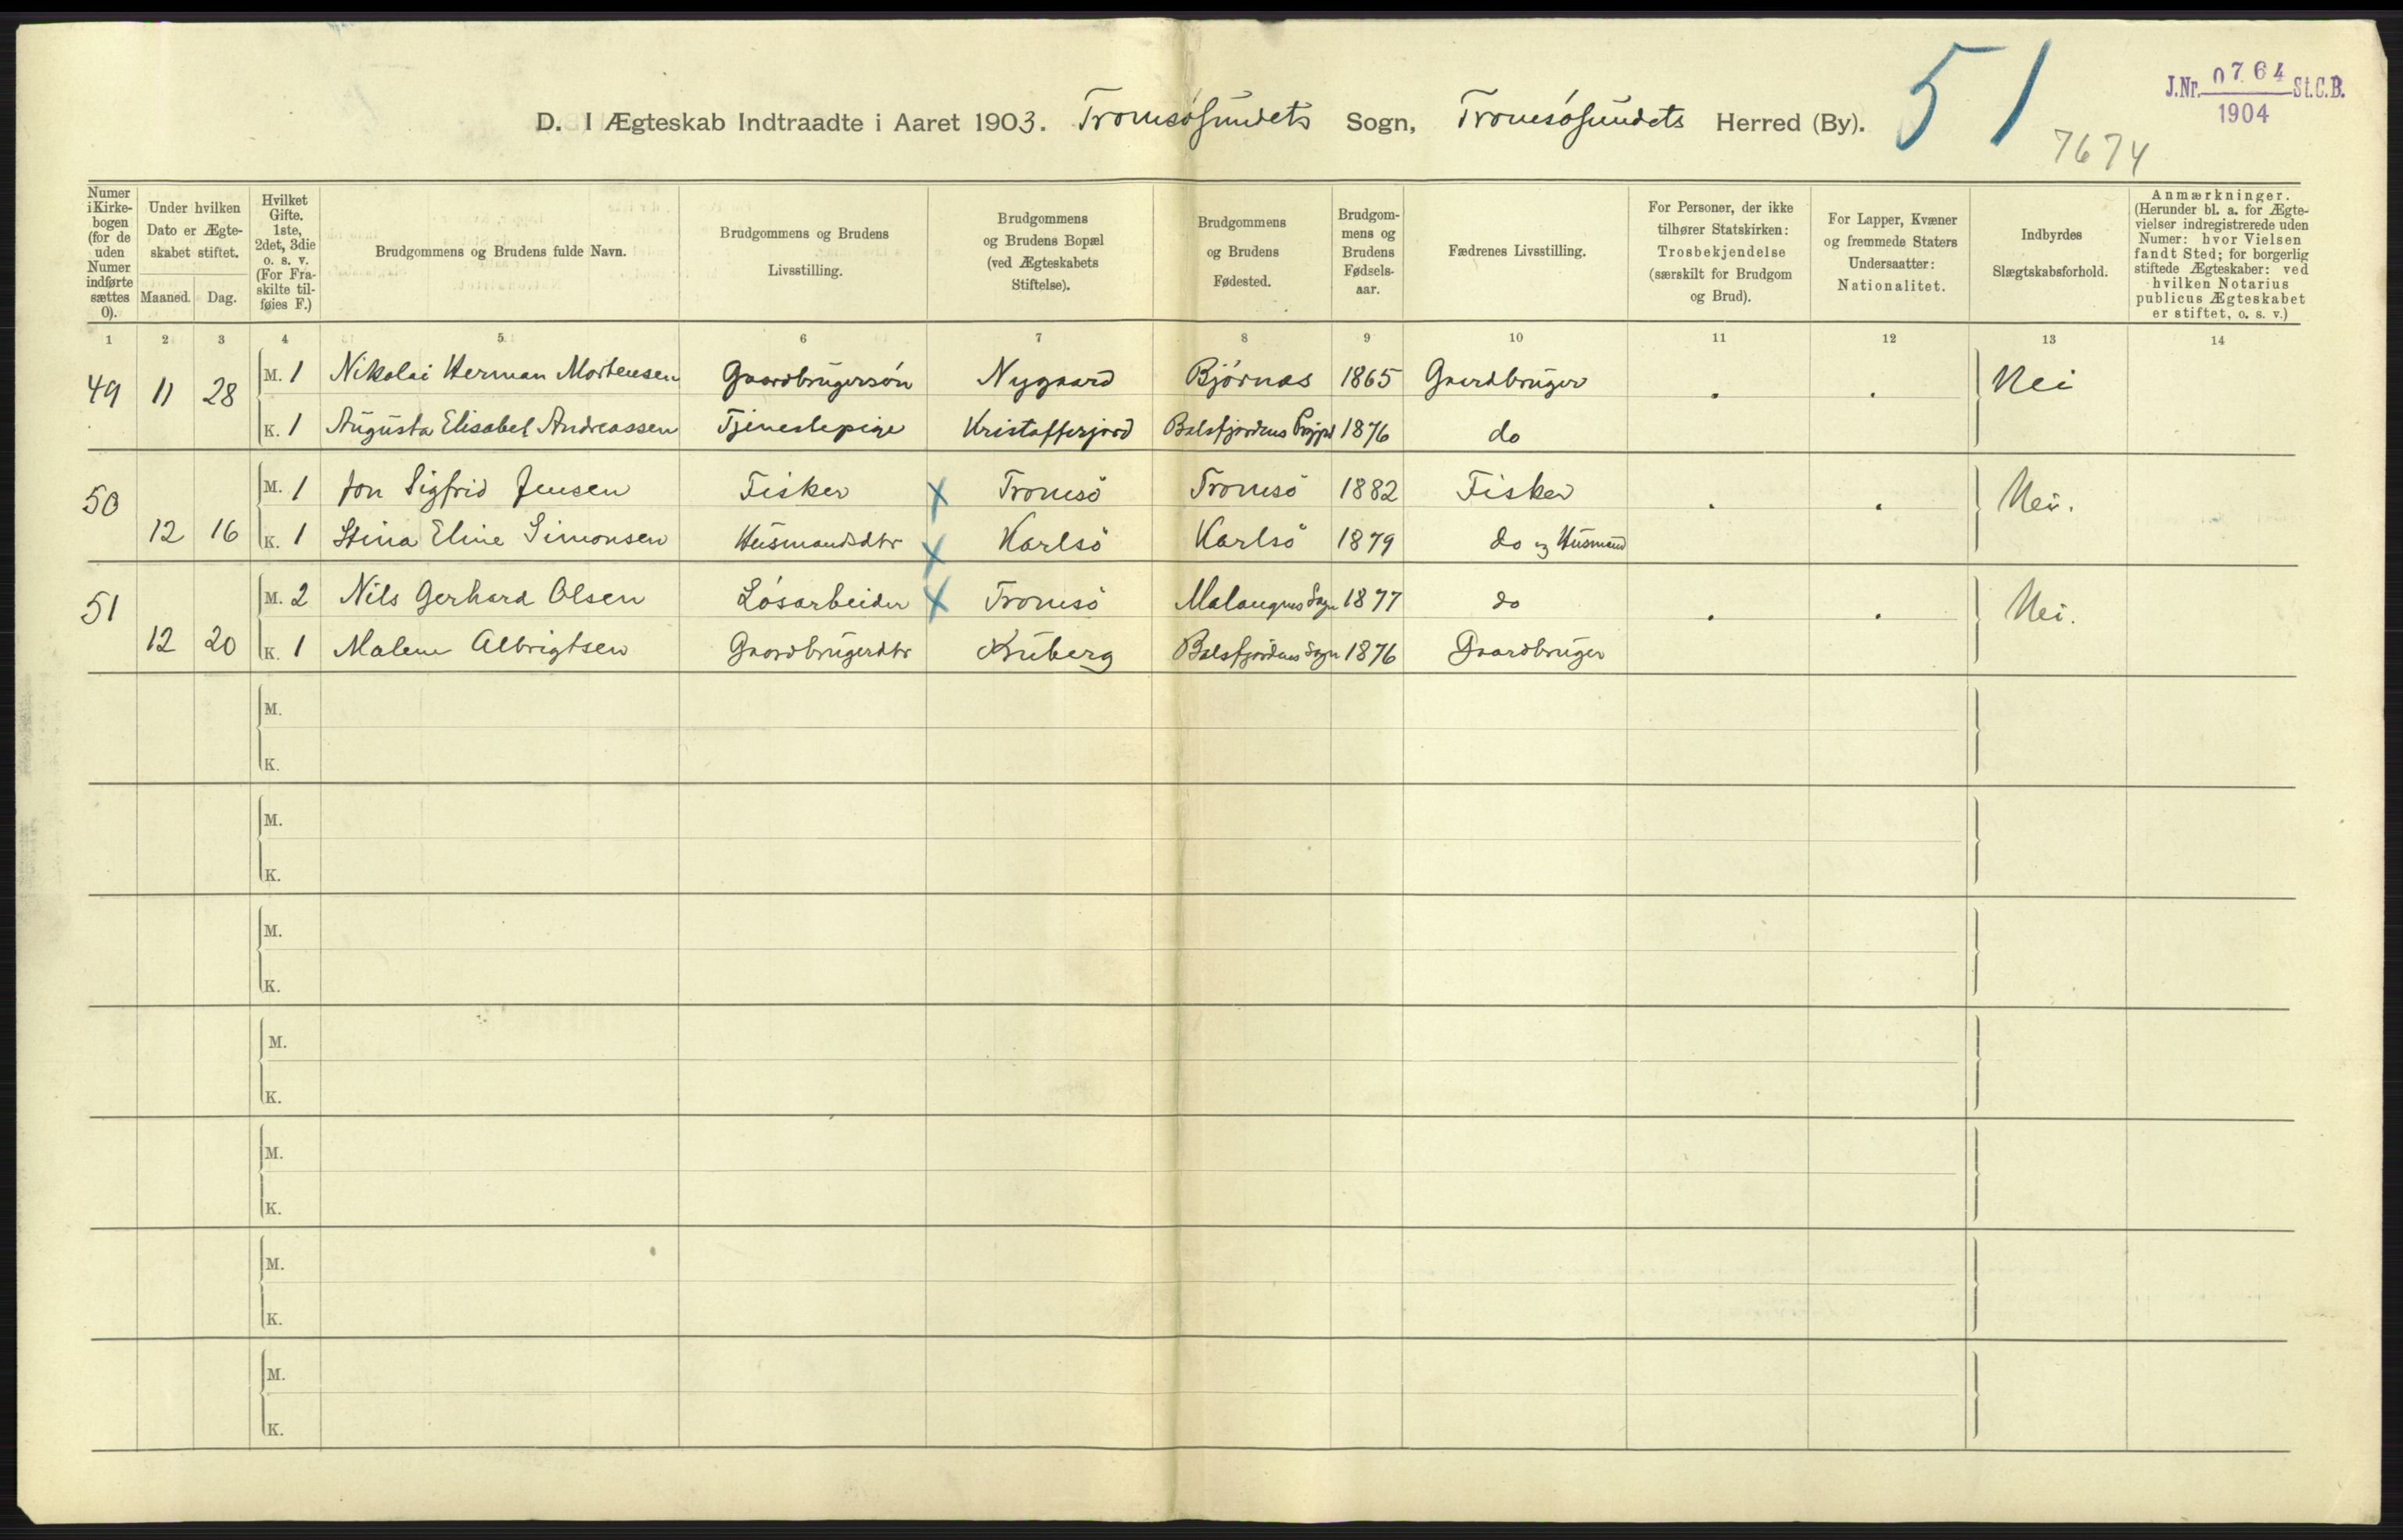 D. I Ægteskab Indtraadte i Aaret 1903. Tromsøsundets Sogn, Tromsøsundets Herred (By). 51
J.Nr. 0764 St.C.B.
1904
7674
Numer i Kirke-bogen (for de uden Numer indførte sættes 0).
Under hvilken Dato er Ægte-skabet stiftet.
Maaned. Dag.
Hvilket Gifte. 1ste, 2det, 3die o. s. v. (For Fra-skilte til-føies F.)
Brudgommens og Brudens fulde Navn.
Brudgommens og Brudens Livsstilling.
Brudgommens og Brudens Bopæl (ved Ægteskabets Stiftelse).
Brudgommens og Brudens Fødested.
Brudgom-mens og Brudens Fødsels-aar.
Fædrenes Livsstilling.
For Personer, der ikke tilhører Statskirken: Trosbekjendelse (særskilt for Brudgom og Brud).
For Lapper, Kvæner og fremmede Staters Undersaatter: Nationalitet.
Indbyrdes Slægtskabsforhold.
Anmærkninger. (Herunder bl. a. for Ægte-vielser indregistrerede uden Numer: hvor Vielsen fandt Sted; for borgerlig stiftede Ægteskaber: ved hvilken Notarius publicus Ægteskabet er stiftet, o. s. v.)
1 2 3 4 5 6 7 8 9 10 11 12 13 14
49 11 28 M. 1 Nikolai Herman Mortensen Gaardbrugersøn Nygaard Bjørnas 1865 Gaardbruger Nei
K. 1 Augusta Elisabet Andreassen Tjenestepige Kristofferjord Balsfjordens 1876 do
50 M. 1 Jon Sigfrid Jensen Fisker X Tromsø Tromsø 1882 Fisker Nei.
12 16 K. 1 Stina Eline Simonsen Husmandsdtr X Karlsø Karlsø 1879 do og Husmand
51 M. 2 Nils Gerhard Olsen Løsarbeider X Tromsø Malangens Sogn 1877 do Nei.
12 20 K. 1 Malene Albrigtsen Gaardbrugerdtr Balsfjordens Sogn 1876 Gaardbruger
M.
K.
M.
K.
M.
K.
M.
K.
M.
K.
M.
K.
M.
K.